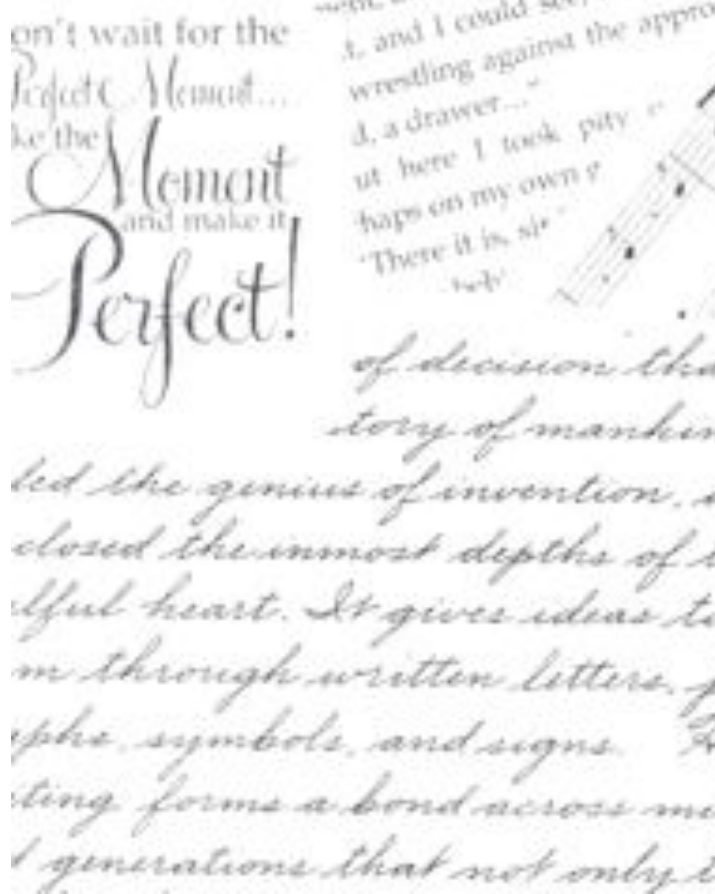 on't wait for the
Perfect Moment...
ke the
Moment
and make it
Perfect!
t, and I could see,
wrestling against the appro
d, a drawer..."
ut here I took pity
haps on my own
"There it is, si
of decision tha
tory of mankin
led the genius of invention,
closed the inmost depths of t
lful heart. It gives ideas to
m through written letters,
phs, symbols, and signs.
ting forms a bond across
generations that not only